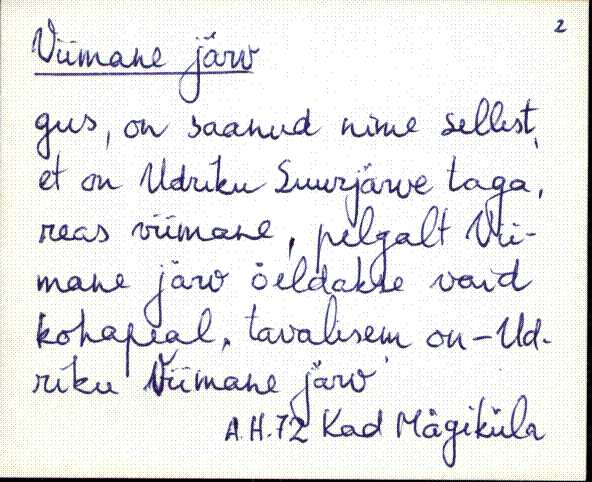 2
Viimane järv
gus, on saanud nime sellest,
et on Udriku Suurjärve taga,
reas viimane, pelgalt Vii-
mane järv öeldakse vaid
kohapeal, tavalisem on – Ud-
riku Viimane järv
A.H.72 Kad Mägiküla